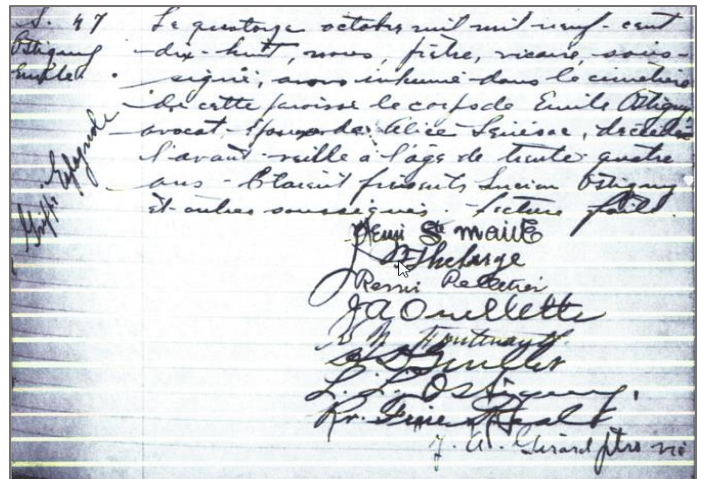 S. 47
Ostiguy
Emile
Grippe Espagnole
Le quatorze octobre mil mil neuf-cent
dix-huit, nous, prêtre, vicaire, sous-
signé, avons inhumé dans le cimetière
de cette paroisse le corps de Emile Ostiguy
avocat, époux de Alice Senésac, décédé
l'avant-veille à l'âge de trente-quatre
ans. Etaient présents Lucien Ostiguy
et autres soussignés. Lecture faite.
Henri St Marie
Thelarge
Remi Pelletier
J A Ouellette
L. L. Ostiguy
J. A. Girard ptre vic